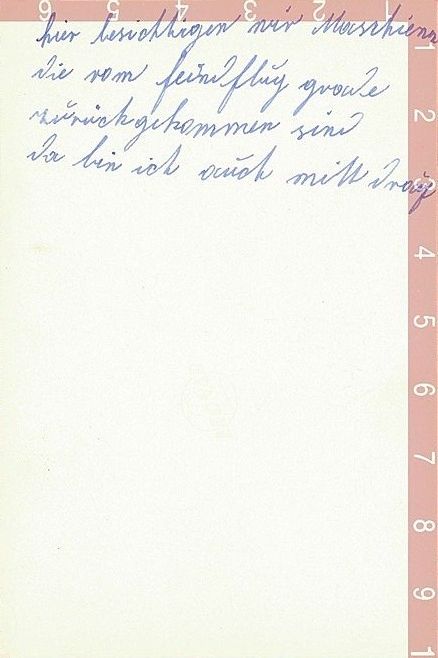 hier besichtigen wir Maschienen
die vom feindflug grade
zurückgekommen sind
da bin ich auch mitt drauf
6 5 4 3 2 1
1
2
3
4
5
6
7
8
9
1